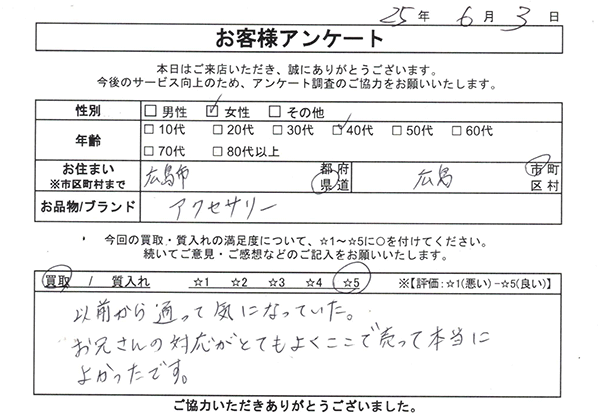 25年 6月 3日
お客様アンケート
本日はご来店いただき、誠にありがとうございます。
今後のサービス向上のため、アンケート調査のご協力をお願いいたします。
性別 □男性 ☑女性 □その他
年齢 □10代 □20代 □30代 ☑40代 □50代 □60代
□70代 □80代以上
お住まい ※市区町村まで 広島市 都府県道 広島 市町区村
お品物/ブランド アクセサリー
今回の買取・質入れの満足度について、☆1～☆5に○を付けてください。
続いてご意見・ご感想などのご記入をお願いいたします。
買取 / 質入れ ☆1 ☆2 ☆3 ☆4 ☆5 ※【評価:☆1(悪い)−☆5(良い)】
以前から通って気になっていた。
お兄さんの対応がとてもよくここで売って本当に
よかったです。
ご協力いただきありがとうございました。